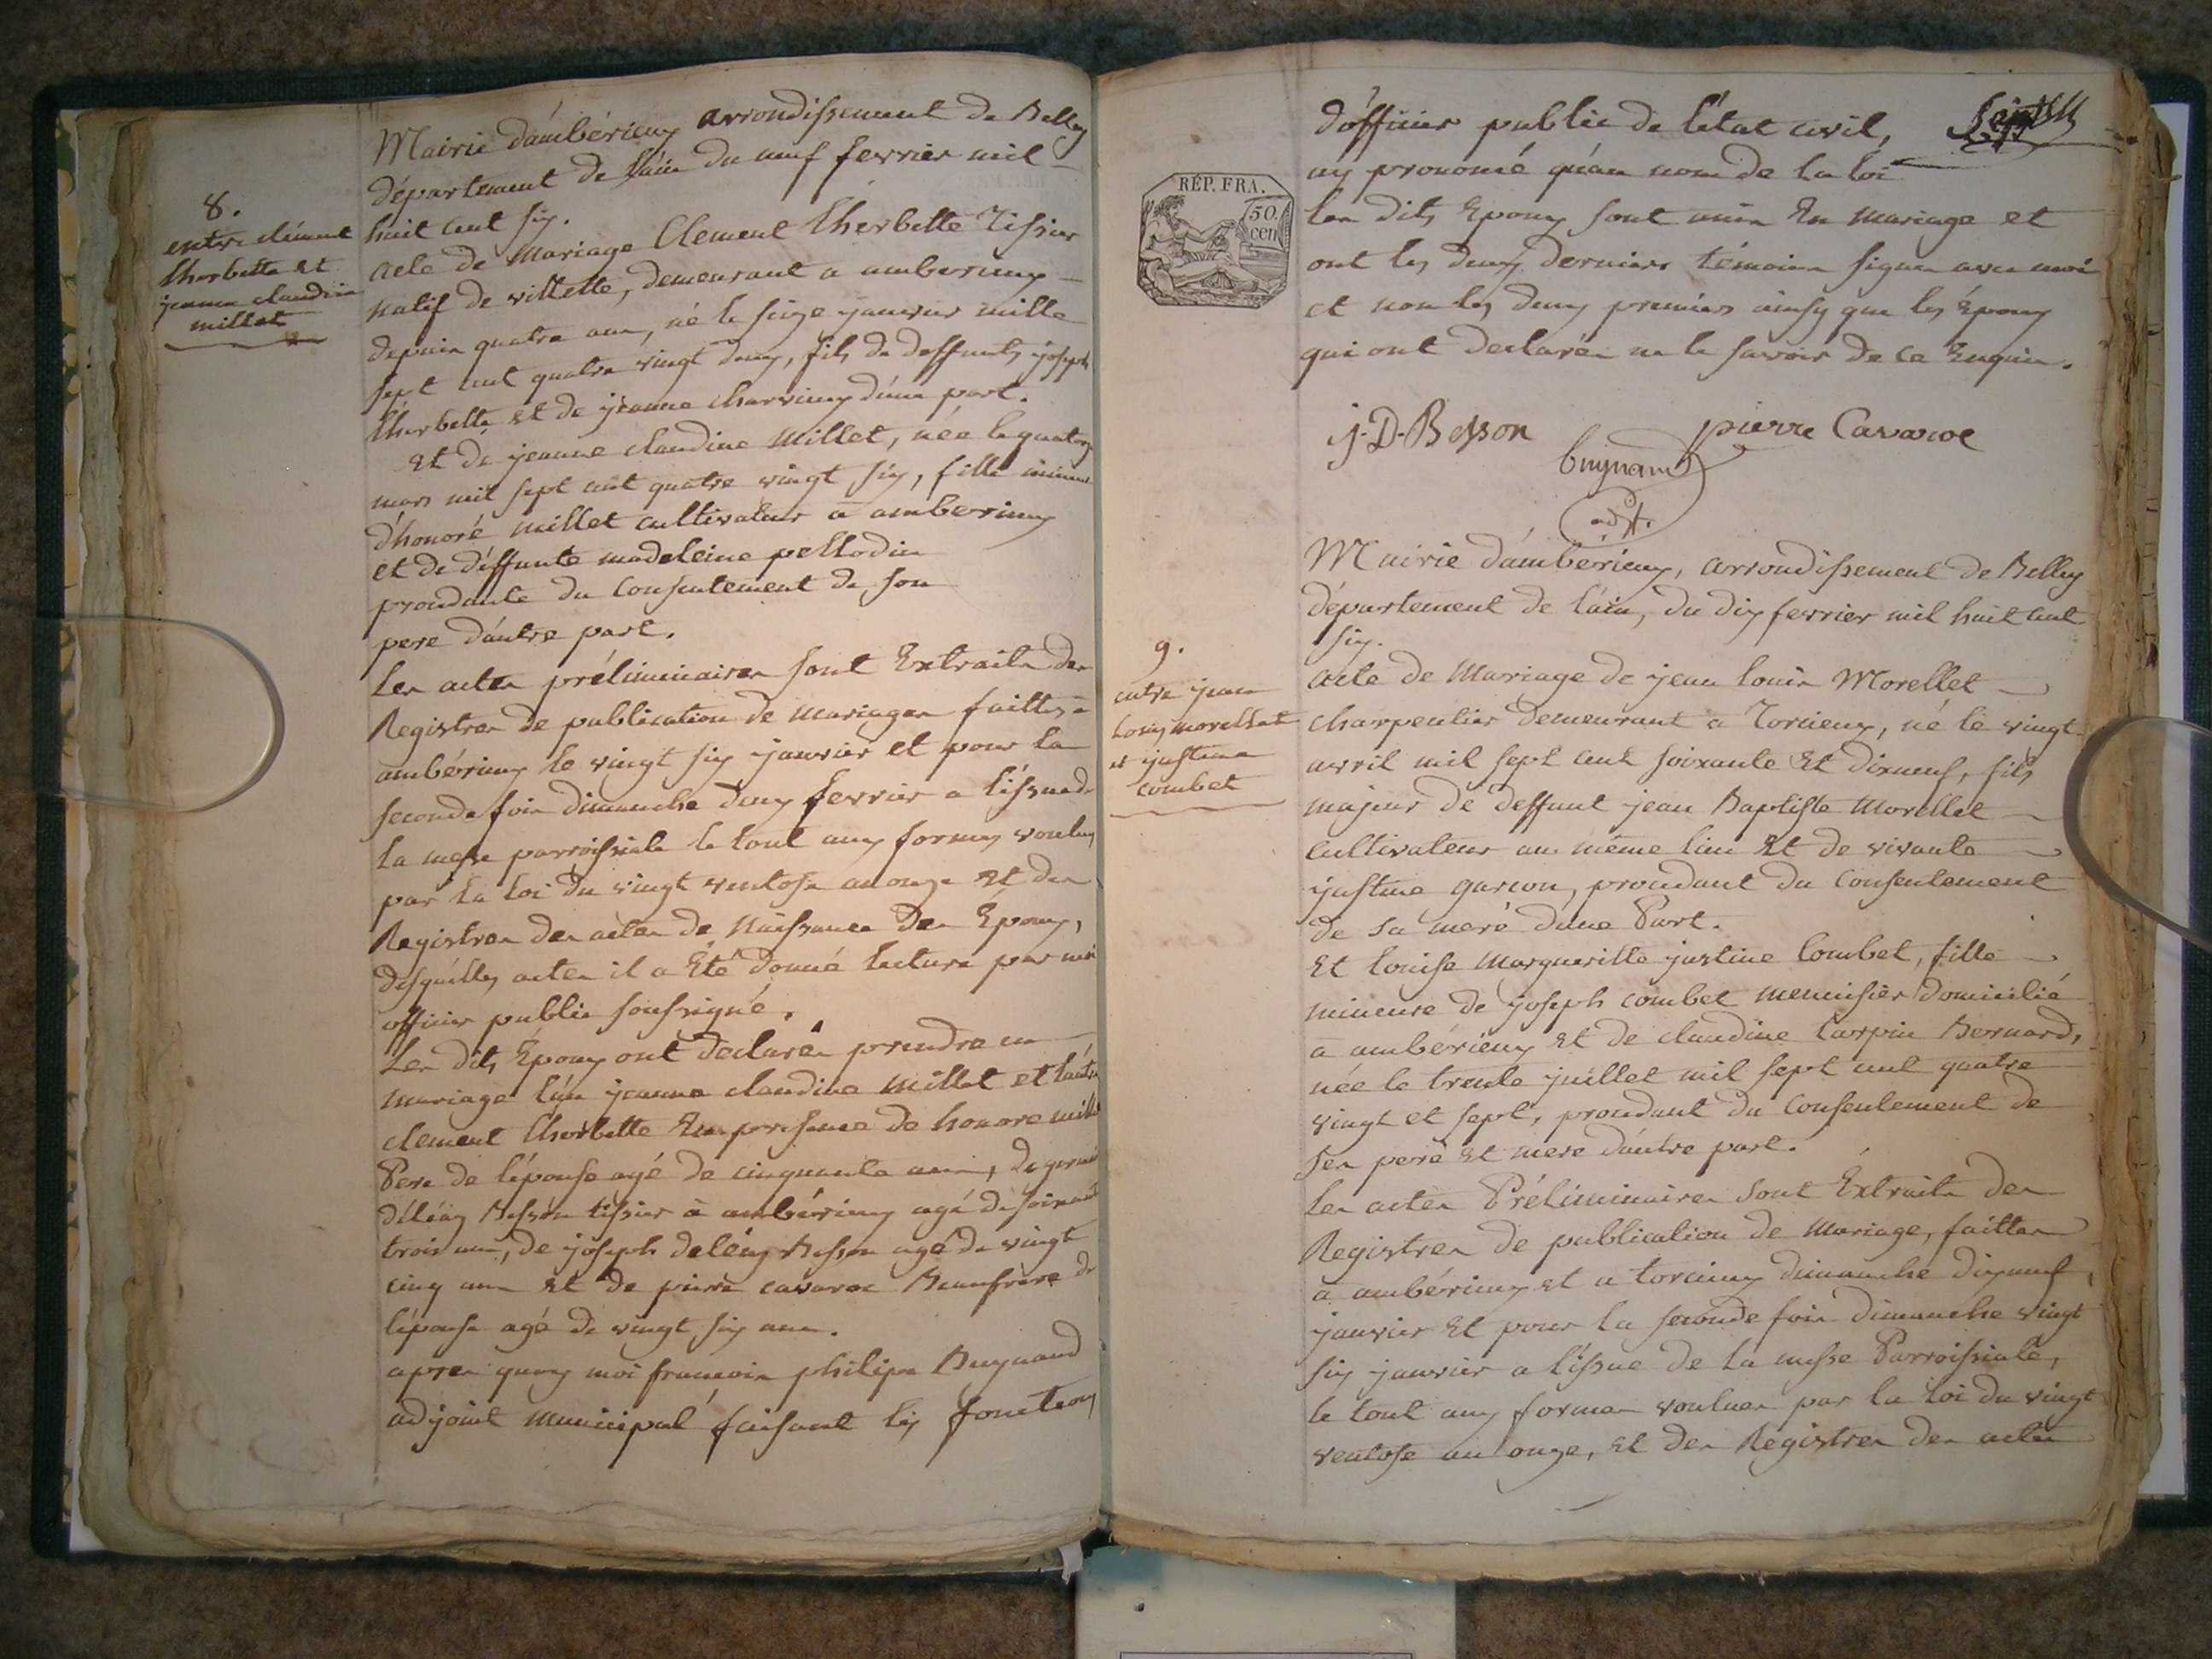 8.
entre clément
lherbette et
jeanne claudine
millet
Mairie d'ambérieux arrondissement de Belley
département de l'ain du neuf fevrier mil
huit cent six.
acte de Mariage Clement Lherbette Tissier
natif de villette, demeurant a amberieux
depuis quatre ans, né le seize janvier mille
sept cent quatre vingt deux, fils de deffunts joseph
Lherbette et de jeanne charvieux d'une part.
Et de jeanne claudine Millet, née le quatorze
mars mil sept cent quatre vingt six, fille mineure
d'honoré millet cultivateur a amberieux
et de déffunte madeleine pellodin
procedante du consentement de son
pere d'autre part.
Les actes préliminaires sont Extraits des
Registres de publication de mariages faittes a
ambérieux le vingt six janvier et pour la
seconde fois dimanche deux fevrier a l'issue de
la messe parroissiale le tout aux formes voulues
par la loi du vingt ventose an onze Et des
Registres des actes de Naissance des Epoux,
desquelles actes il a Eté donné lecture par moi
officier public soussigné.
Les dits Époux ont déclarés prendre en
mariage l'un jeanne claudine Millet et l'autre
clement Lherbette En presence de honoré millet
Pere de l'épouse agé de cinquante ans, de
déléaz Besson tissier à ambérieux agé de soixante
trois ans, de joseph deléaz Besson agé de vingt
cinq ans Et de pierre cavaroc Beaufrere de
l'épouse agé de vingt six ans.
apres quoy moi francois philipe Buynand
adjoint municipal faisant les fonctions
d'officier public de l'état civil,
ay prononcé qu'au nom de la loi
les dits Epoux sont unis En mariage et
ont les deux derniers témoins signés avec moi
et non les deux premiers ainsy que les Époux
qui ont declarés ne le savoir de ce Enquis.
RÉP. FRA.
50.
cen
j. D. Besson
pierre Cavaroc
buynand
adjt.
9.
entre jean
louis morellet
et justine
combet
Mairie d'ambérieux, arrondissement de Belley
département de l'ain, du dix fevrier mil huit cent
six.
acte de Mariage de jean louis Morellet
charpentier demeurant a Torcieux, né le vingt
avril mil sept cent soixante Et dixneuf, fils
majeur de deffunt jean Baptiste Morellet
cultivateur au même lieu Et de vivante
justine garcon, procedant du Consentement
de sa mere d'une Part.
Et louise Margueritte justine Combet, fille
mineure de joseph combet menuisier domicilié
a ambérieux Et de claudine Carpin Bernard,
née le trente juillet mil sept cent quatre
vingt et sept, procedant du consentement de
ses pere Et mere d'autre part.
Les actes Préliminaires sont Extraits des
Registres de publication de Mariage, faittes
a ambérieux et a torcieux dimanche dixneuf
janvier Et pour la seconde fois dimanche vingt
six janvier a l'issue de la messe Parroissiale,
le tout aux formes voulues par la loi du vingt
ventose an onze, et des Registres des actes